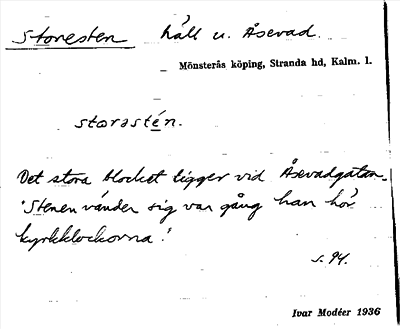 Storesten häll u. Åsevad.
Mönsterås köping, Stranda hd, Kalm. l.
storəstén.
Det stora blocket ligger vid Åsevadgatan.
"Stenen vänder sig var gång han hör
kyrkklockorna."
s. 94.
Ivar Modéer 1936